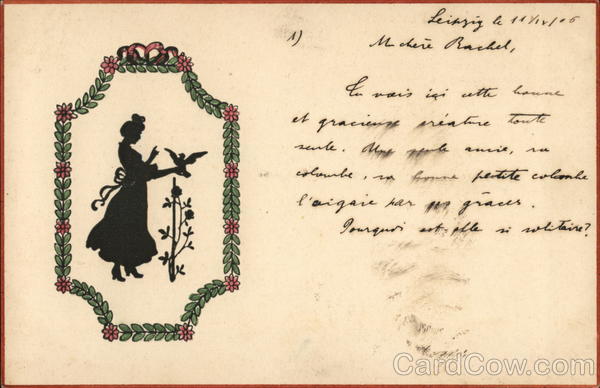 Leipzig le 11/IX/06
1)
M chère Rachel,
Tu vois içi cette bonne
et gracieuse créature toute
seule. Une seule amie, sa
colombe, sa bonne petite colombe
l'aigaie par ses grâces.
Pourquoi est-elle si solitaire?
CardCow.com